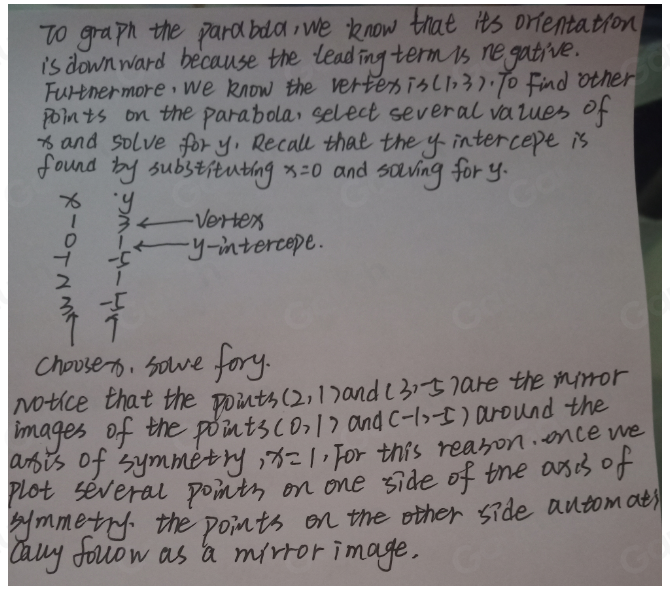 To graph the parabola, we know that its orientation
is downward because the leading term is negative.
Furthermore, we know the vertex is (1,3). To find other
points on the parabola, select several values of
x and solve for y. Recall that the y-intercepe is
found by substituting x=0 and solving for y.
x y
1 3 ← Vertex
0 1 ← y-intercepe.
-1 -5
2 1
3 -5
↑ ↑
Choose x, solve for y.
Notice that the points (2,1) and (3,-5) are the mirror
images of the points (0,1) and (-1,-5) around the
axis of symmetry, x=1, For this reason, once we
plot several points on one side of the axis of
symmetry. the points on the other side automati
cally follow as a mirror image.